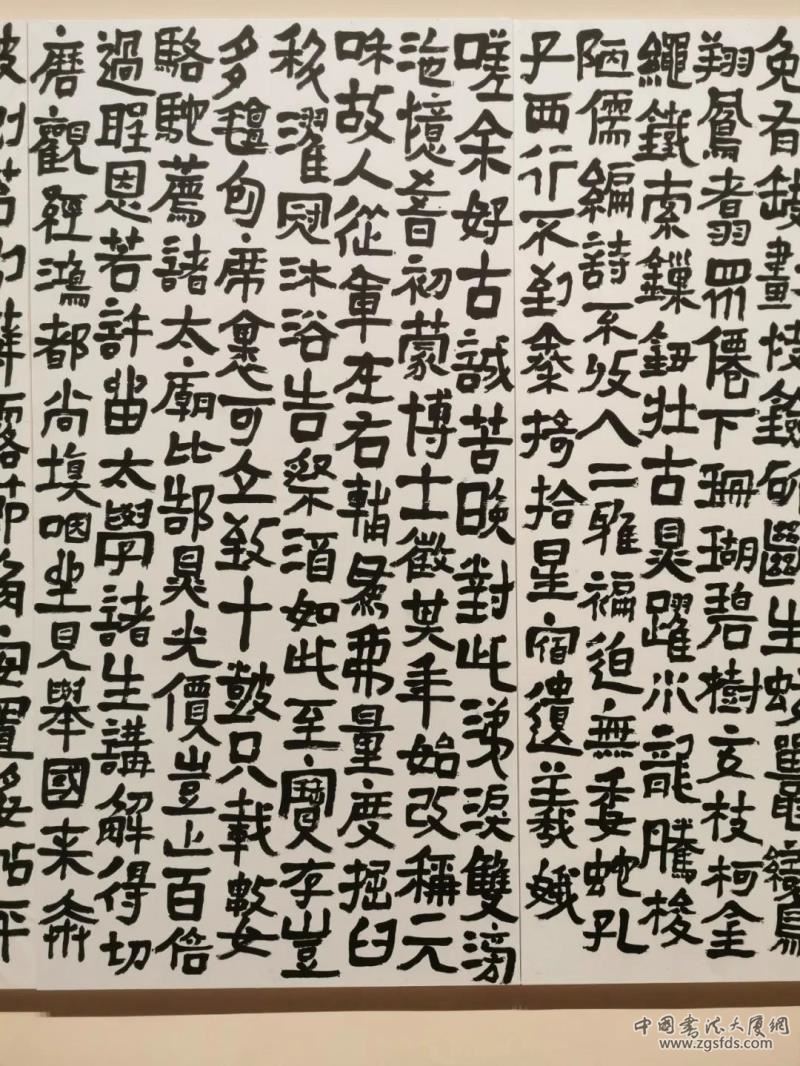 免有鈌畫快劍斫斷生蛟鼉鸞
翔鳳翥眾僊下珊瑚碧樹交枝柯金
繩鐵索鎖鈕壯古鼎躍水龍騰梭
陋儒編詩不收入二雅褊迫無委蛇孔
子西行不到秦掎拾星宿遺羲娥
嗟余好古誠苦晚對此涕淚雙滂
沱憶昔初蒙博士徵其年始改稱元
咊故人從軍在右輔為我量度掘臼
科濯冠沐浴告祭酒如此至寶存豈
多氈包席裹可立致十鼓只載數
駱駝薦諸太廟比郜鼎光價豈止百倍
過聖恩若許留太學諸生講解得切
磨觀經鴻都尚填咽坐見舉國来奔
波剜苔剔蘚露節角安置妥帖平
中国书法大厦網
www.zgsfds.com